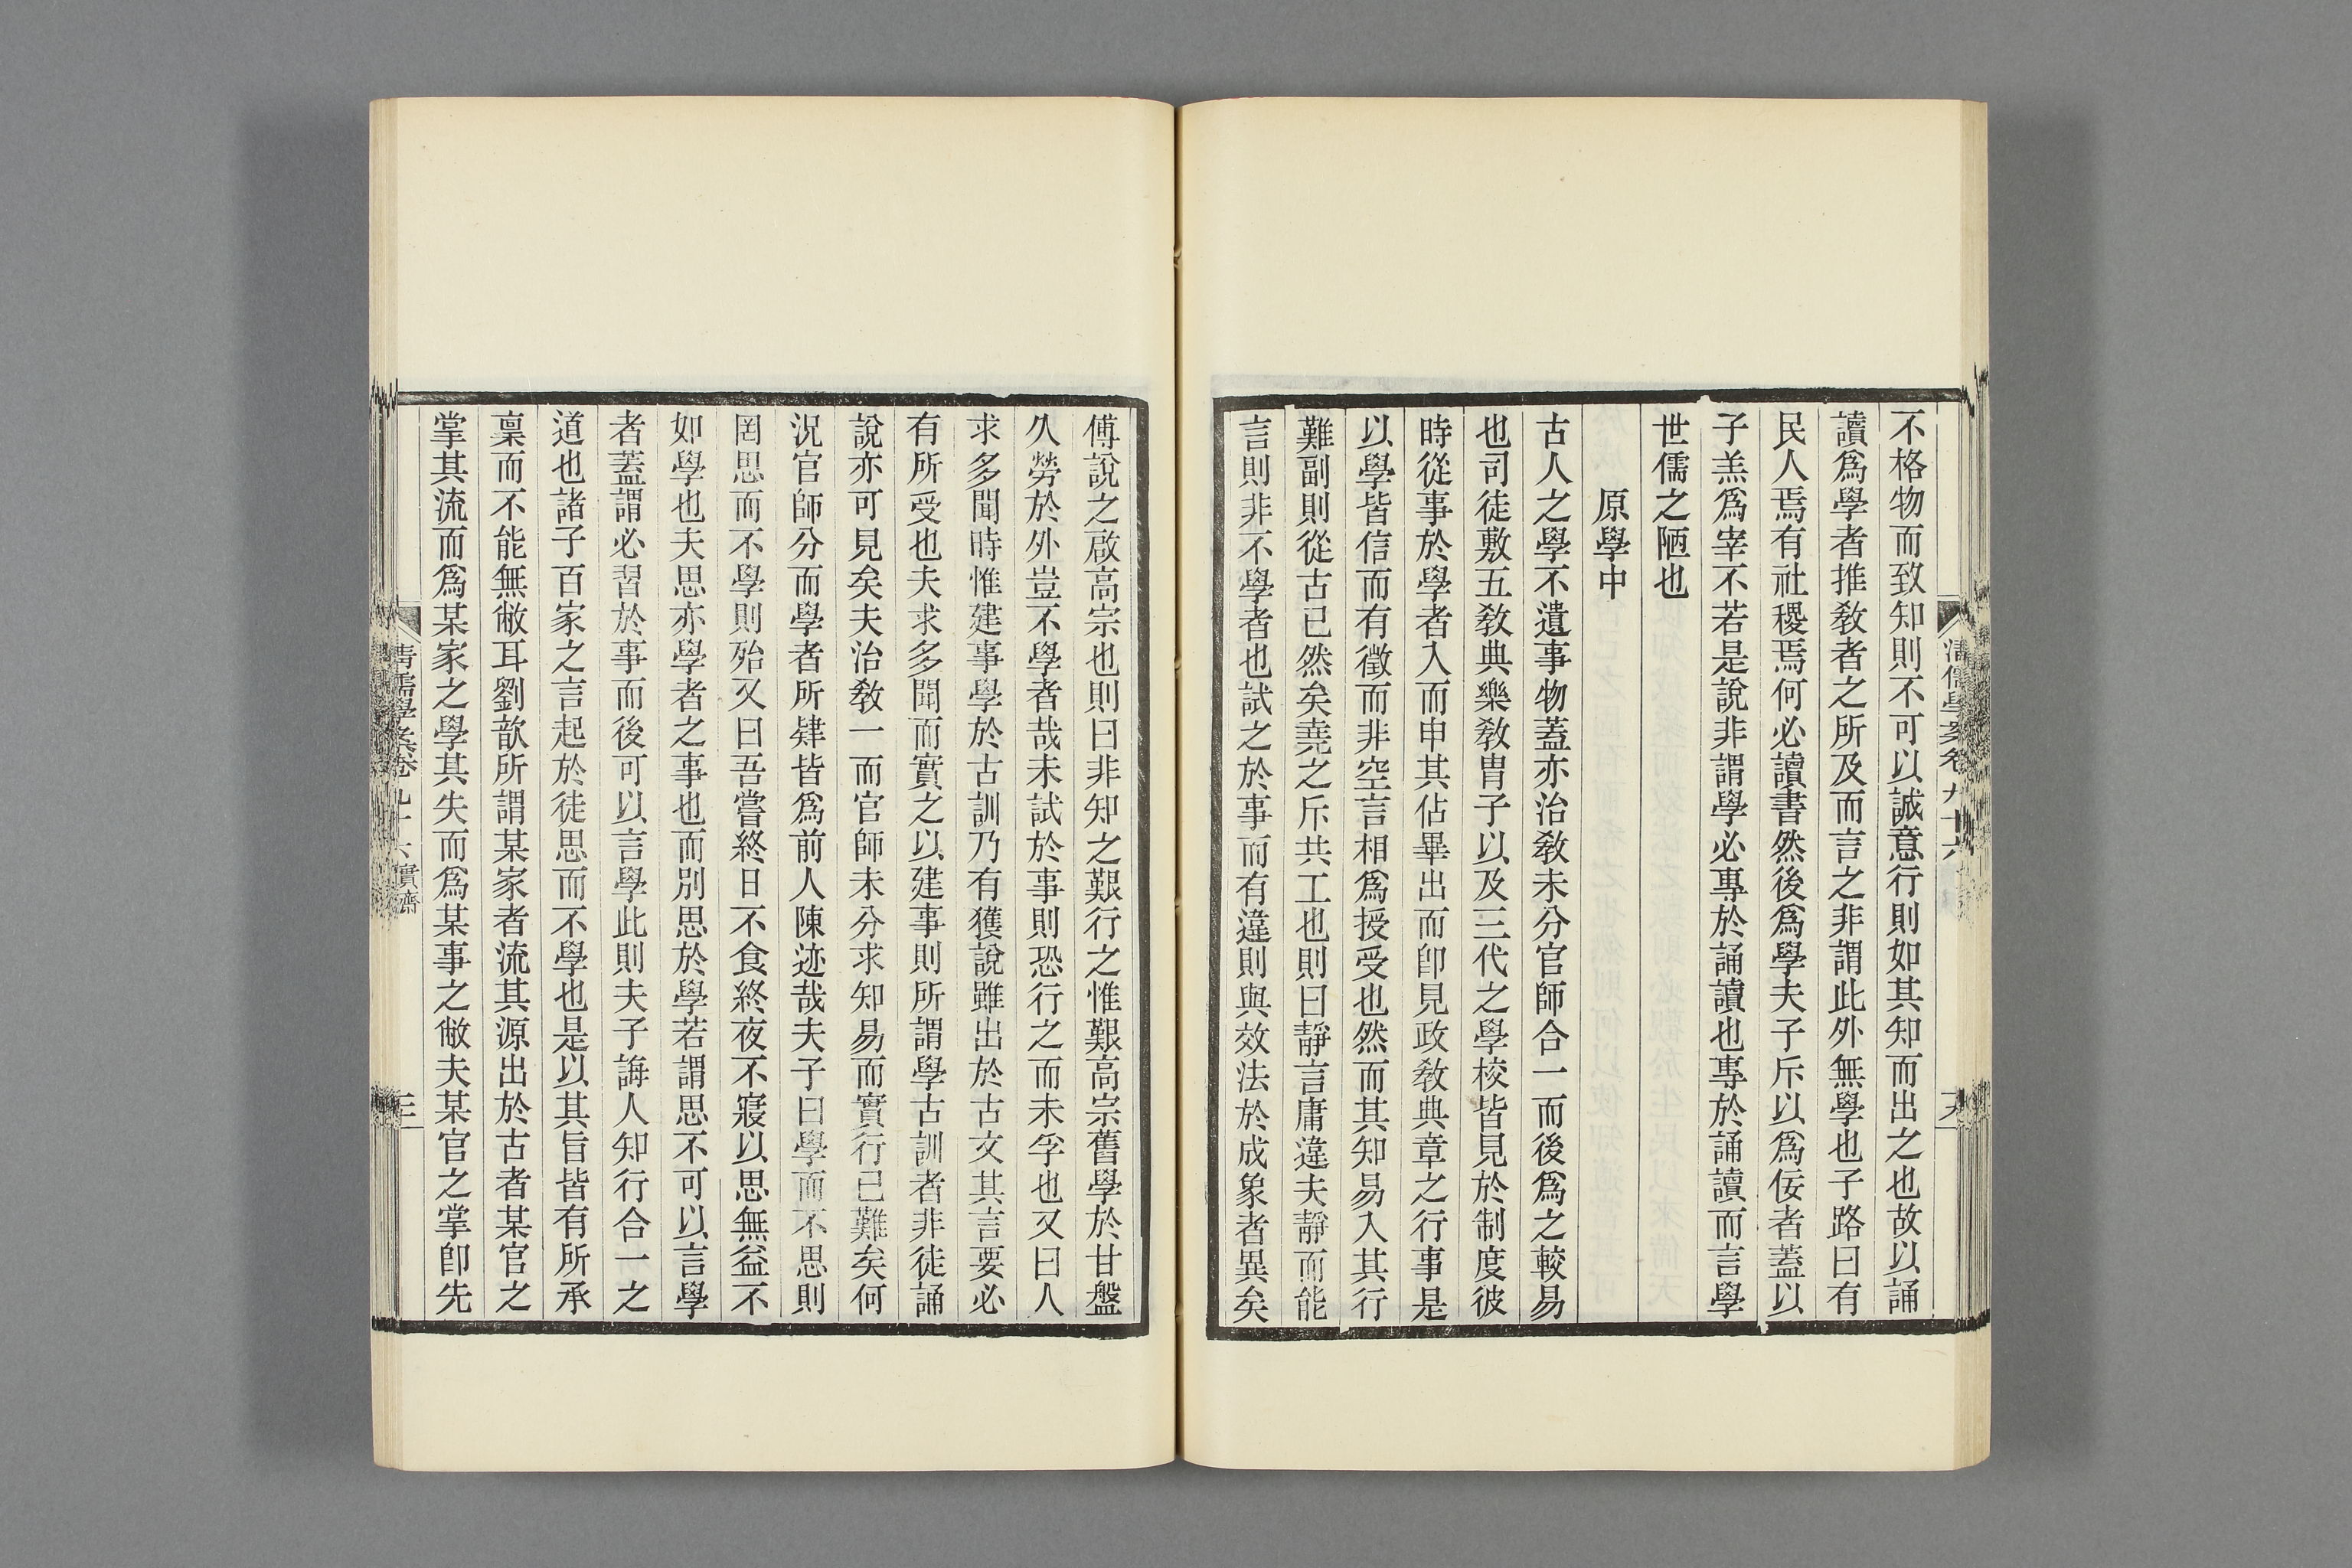 不格物而致知則不可以誠意行則如其知而出之也故以誦
讀爲學者推敎者之所及而言之非謂此外無學也子路曰有
民人焉有社稷焉何必讀書然後爲學夫子斥以爲佞者蓋以
子羔爲宰不若是說非謂學必專於誦讀也專於誦讀而言學
世儒之陋也
原學中
古人之學不遺事物蓋亦治敎未分官師合一而後爲之較易
也司徒敷五敎典樂敎胄子以及三代之學校皆見於制度彼
時從事於學者入而申其佔畢出而卽見政敎典章之行事是
以學皆信而有徵而非空言相爲授受也然而其知易入其行
難副則從古已然矣堯之斥共工也則曰靜言庸違夫靜而能
言則非不學者也試之於事而有違則與效法於成象者異矣
傅說之啟高宗也則曰非知之艱行之惟艱高宗舊學於甘盤
久勞於外豈不學者哉未試於事則恐行之而未孚也又曰人
求多聞時惟建事學於古訓乃有獲說雖出於古文其言要必
有所受也夫求多聞而實之以建事則所謂學古訓者非徒誦
說亦可見矣夫治敎一而官師未分求知易而實行已難矣何
況官師分而學者所肄皆爲前人陳迹哉夫子曰學而不思則
罔思而不學則殆又曰吾嘗終日不食終夜不寢以思無益不
如學也夫思亦學者之事也而別思於學若謂思不可以言學
者蓋謂必習於事而後可以言學此則夫子誨人知行合一之
道也諸子百家之言起於徒思而不學也是以其旨皆有所承
稟而不能無敝耳劉歆所謂某家者流其源出於古者某官之
掌其流而爲某家之學其失而爲某事之敝夫某官之掌卽先
清儒學案卷九十六 實齋